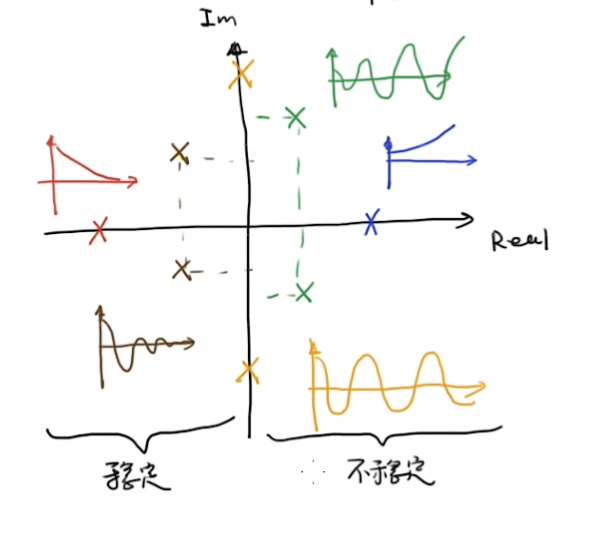 Im
Real
稳定
不稳定